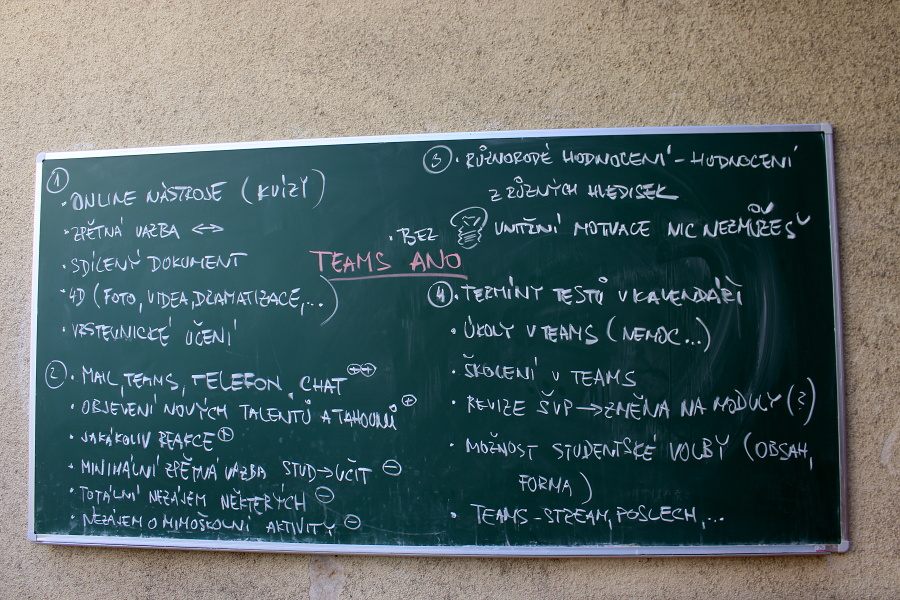 ①
· ONLINE NÁSTROJE (KVÍZY)
· ZPĚTNÁ VAZBA ↔
· SDÍLENÝ DOKUMENT
· 4D (FOTO, VIDEA, DRAMATIZACE, ...)
· VRSTEVNICKÉ UČENÍ
② · MAIL, TEAMS, TELEFON, CHAT ⊕⊕
· OBJEVENÍ NOVÝCH TALENTŮ A TAHOUNŮ ⊕
· JAKÁKOLIV REAKCE ⊕
· MINIMÁLNÍ ZPĚTNÁ VAZBA STUD→UČIT ⊖
· TOTÁLNÍ NEZÁJEM NĚKTERÝCH ⊖
· NEZÁJEM O MIMOŠKOLNÍ AKTIVITY ⊖
TEAMS ANO
③ · RŮZNORODÉ HODNOCENÍ - HODNOCENÍ
Z RŮZNÝCH HLEDISEK
· BEZ VNITŘNÍ MOTIVACE NIC NEZMŮŽEŠ
④ · TERMÍNY TESTŮ V KALENDÁŘI
· ÚKOLY V TEAMS (NEMOC...)
· ŠKOLENÍ V TEAMS
· REVIZE ŠVP → ZMĚNA NA MODULY (?)
· MOŽNOST STUDENTSKÉ VOLBY (OBSAH,
FORMA)
· TEAMS - STREAM, POSLECH, ...